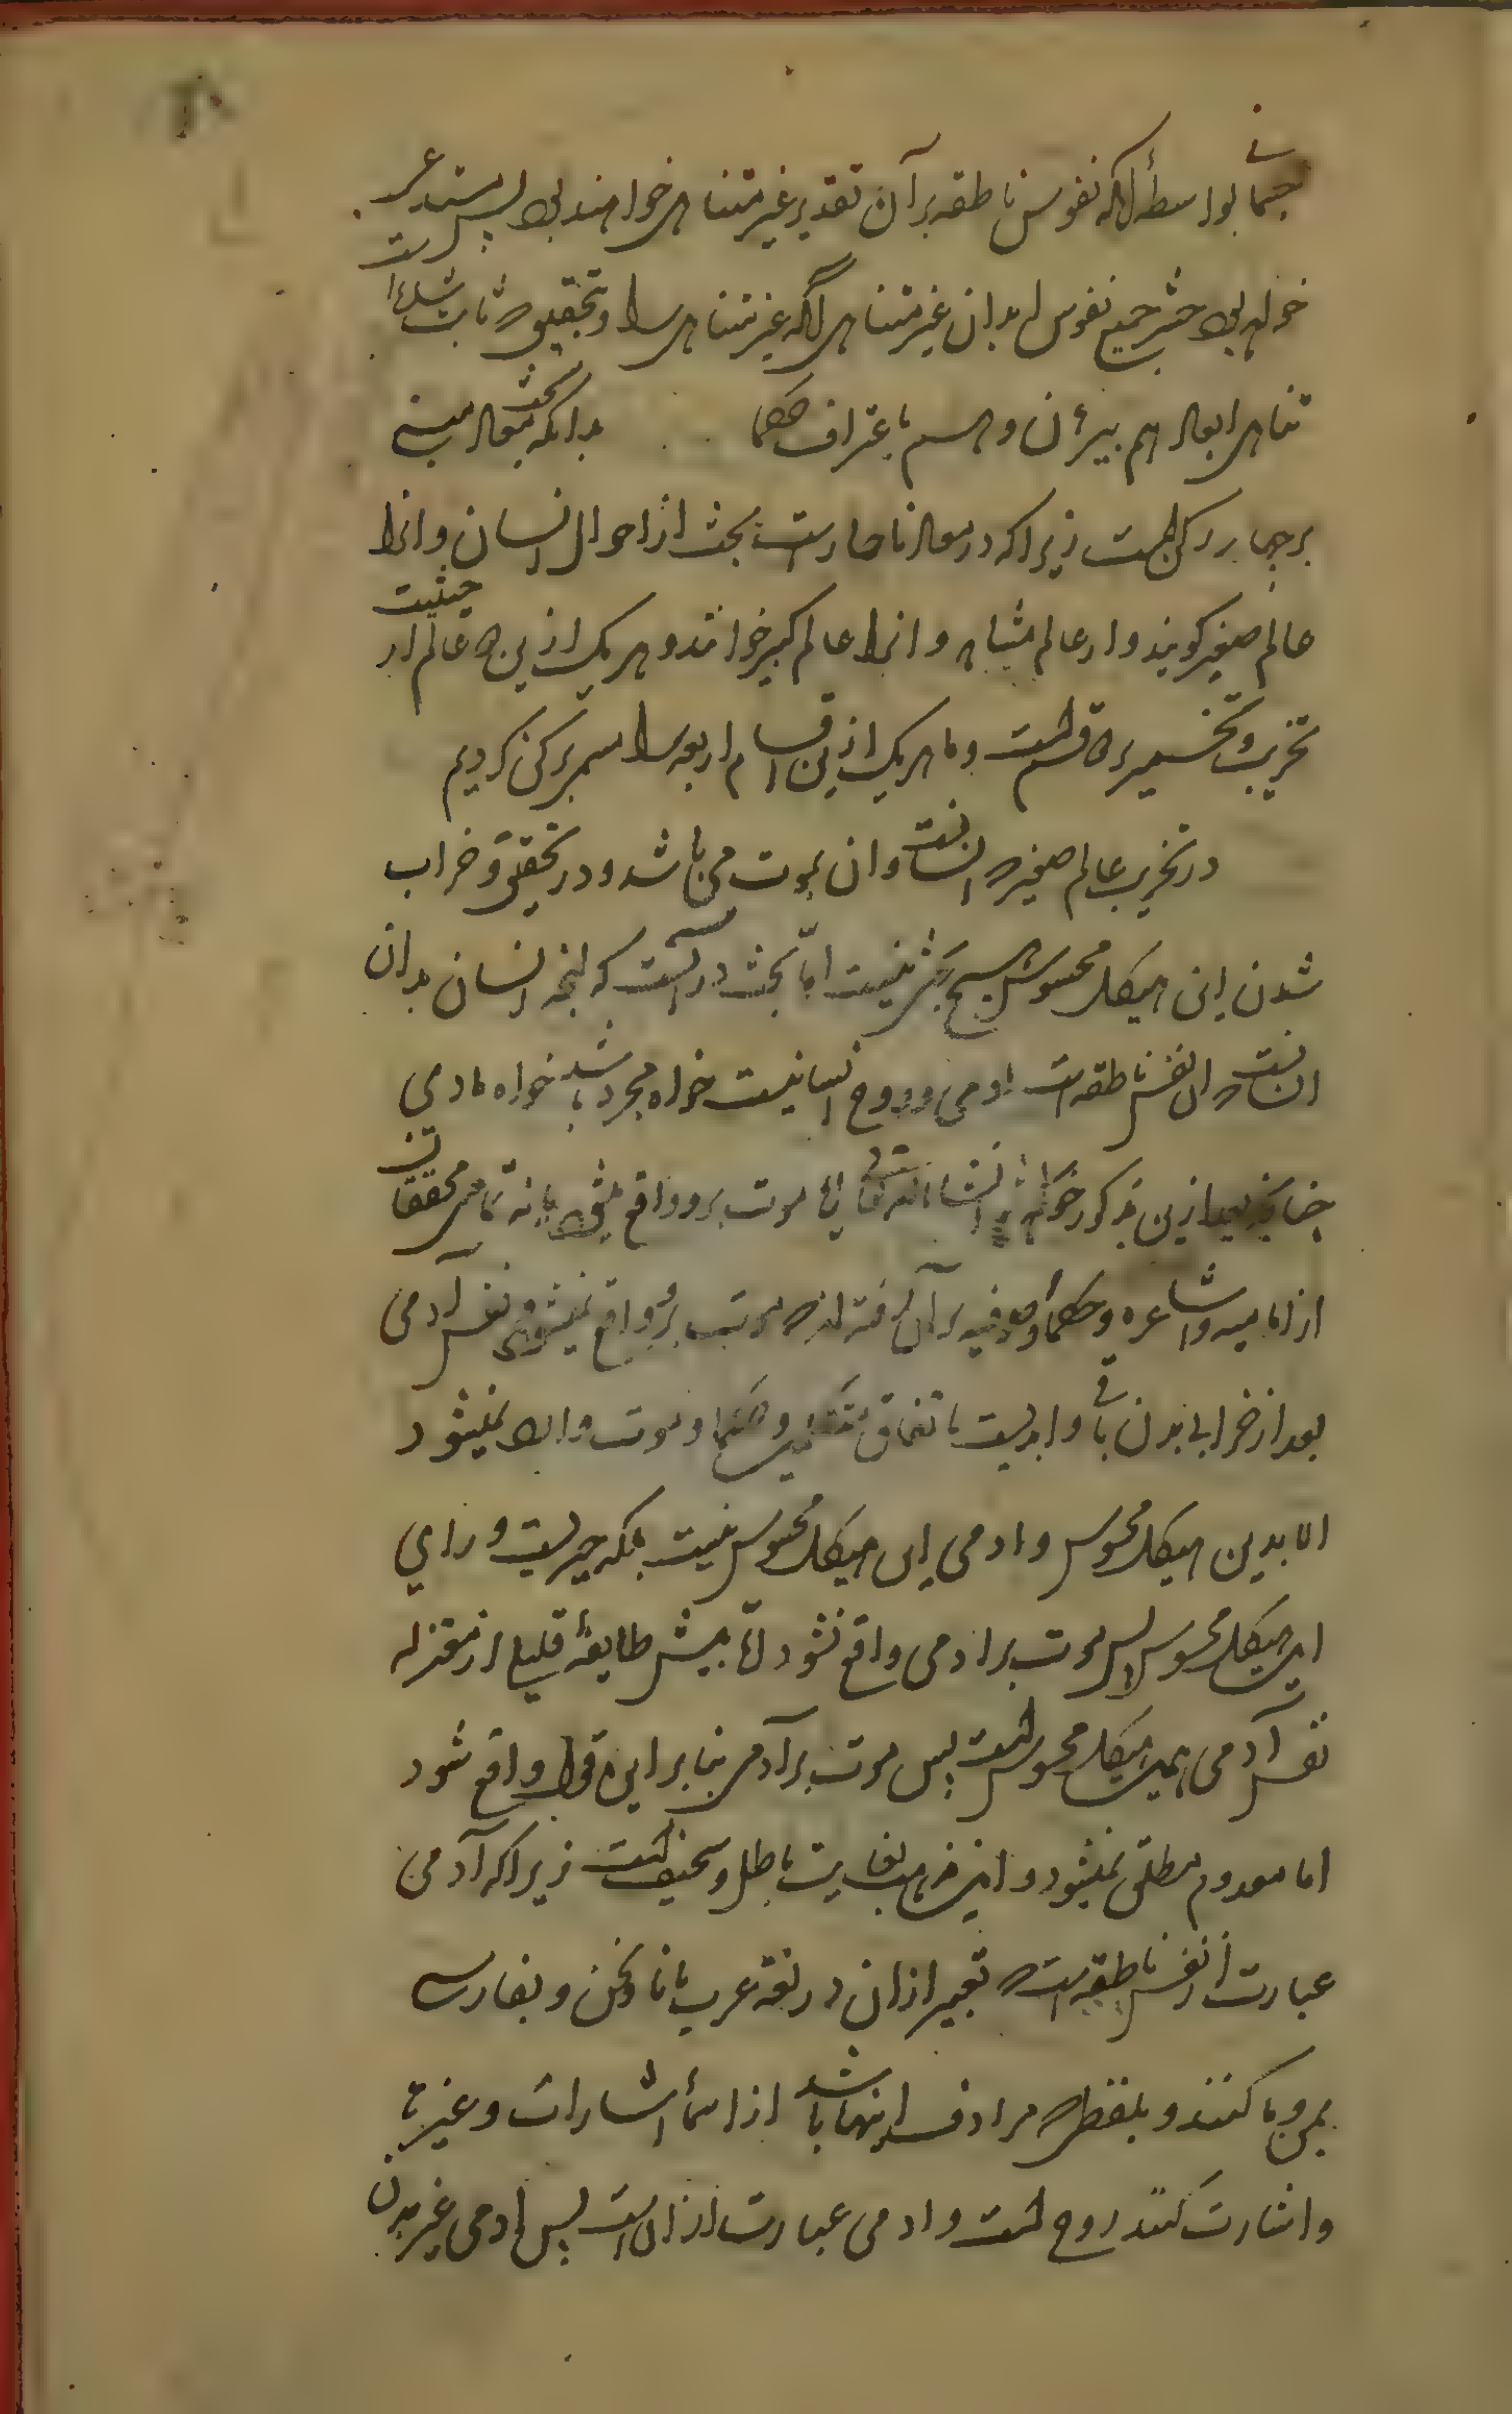 جسمانی بواسطهٔ آنکه نفوس ناطقه بر آن تقدیر غیر متناهی خواهند بود پس مستدعی
خواهد بود حشر جمیع نفوس ابدان غیر متناهی را که غیر متناهی و بتحقیق ثابت شده است
تناهی ابعاد هم ببرهان و هم باعتراف حکما بدانکه بحث معاد مبنی
بر چهار رکن است زیرا که در معاد ناچار است بحث از احوال انسان و انرا
عالم صغیر کویند و از عالم مشاهد و انرا عالم کبیر خوانند و هر یک ازین دو عالم از حیثیت
تخریب و تعمیر دو قسم است و ما هر یک ازین اقسام اربعه را مسمی برکن کردیم
در تخریب عالم صغیر که انسانست و ان بموت می باشد و در تحقیق خراب
شدن این هیکل محسوس هیچ بحث نیست امّا بحث در آنست که انچه انسان بدان
انسانست و ان نفس ناطقه است ادمی و روح انسانیست خواه مجرد باشد خواه مادی
چنانچه بعد ازین مذکور خواهد شد انشاء الله تعالی موت برو واقع میشود یا نه تمامی محققان
از امامیه و اشاعره و حکما و صوفیه بر آن رفته اند که موت برو واقع نمیشود و نفس آدمی
بعد از خرابی بدن باقی و ابدیست باتفاق متکلمین و حکما و موت وارد نمیشود
الا بدین هیکل محسوس و ادمی این هیکل محسوس نیست بلکه چیزیست ورای
این هیکل محسوس پس موت بر ادمی واقع نشود امّا پیش طایفهٔ قلیل از معتزله
نفس آدمی همین هیکل محسوس است پس موت بر آدمی بنا بر این قول واقع شود
اما معدوم مطلق نمیشود و این مذهب بغایت باطل و سخیف است زیرا که آدمی
عبارت از نفس ناطقه است که تعبیر از ان در لغة عرب بانا و نحن و بفارسی
بمن و ما کنند و بلفظی که مرادف اینها باشد از اسماء اشارات و غیرها
و اشارت کنند روح است و ادمی عبارت از ان است پس ادمی غیر بدن